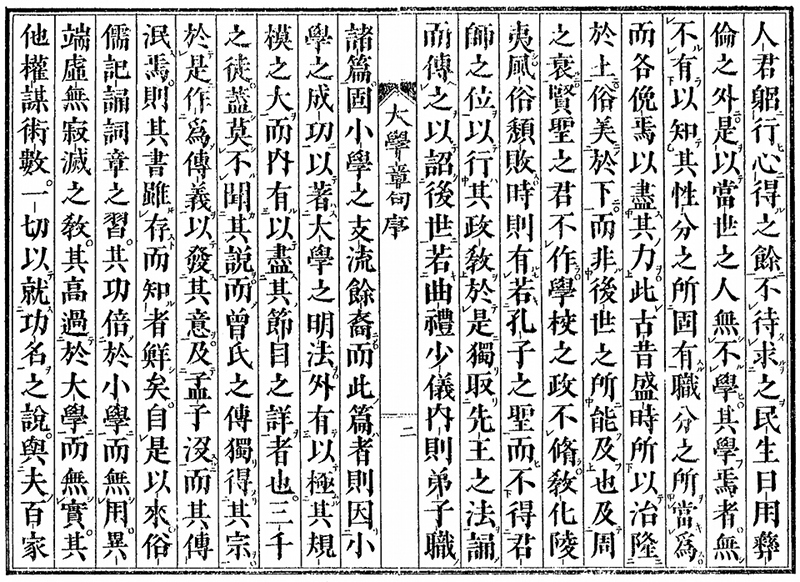 人君躳行心得之餘不待求之民生日用彝
倫之外是以當世之人無不學其學焉者無
不有以知其性分之所固有職分之所當爲
而各俛焉以盡其力此古昔盛時所以治隆
於上俗美於下而非後世之所能及也及周
之衰賢聖之君不作學校之政不脩敎化陵
夷風俗頹敗時則有若孔子之聖而不得君
師之位以行其政敎於是獨取先王之法誦
而傳之以詔後世若曲禮少儀內則弟子職
大學章句序
二
諸篇固小學之支流餘裔而此篇者則因小
學之成功以著大學之明法外有以極其規
模之大而內有以盡其節目之詳者也三千
之徒蓋莫不聞其說而曾氏之傳獨得其宗
於是作爲傳義以發其意及孟子沒而其傳
泯焉則其書雖存而知者鮮矣自是以來俗
儒記誦詞章之習其功倍於小學而無用異
端虛無寂滅之敎其高過於大學而無實其
他權謀術數一切以就功名之說與夫百家